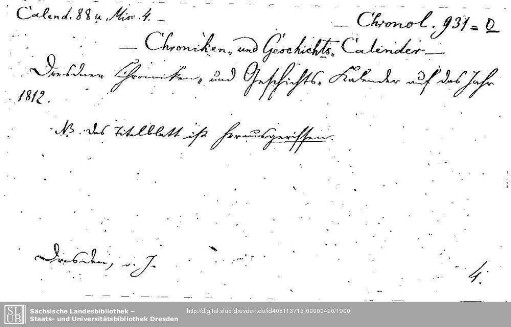 Calend. 88 u. Misc. 4. –
– Chronol. 931 = 0
– Chroniken- und Geschichts-Calender –
Dresdner Chroniken- und Geschichts-Kalender auf das Jahr
1812.
NB. das Titelblatt ist herausgerissen.
Dresden, o. J.
4.
Sächsische Landesbibliothek –
Staats- und Universitätsbibliothek Dresden